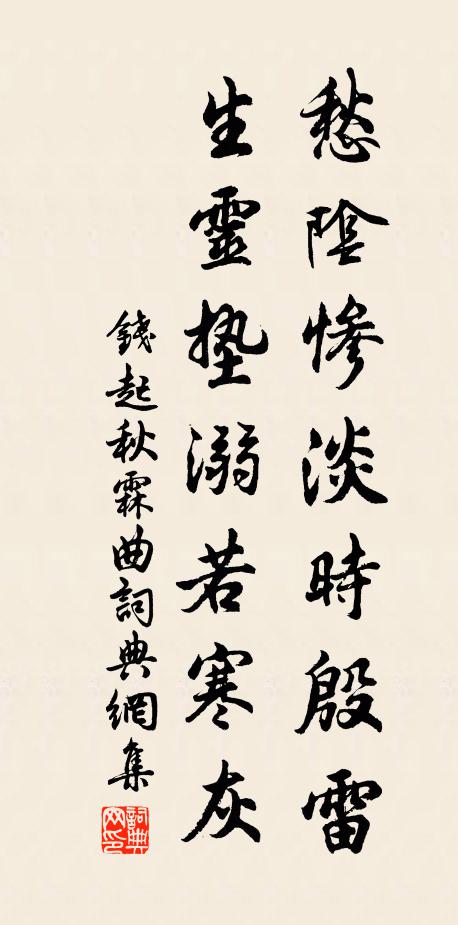 愁陰慘淡時殷雷
生靈墊溺若寒灰
錢起秋霖曲詞典網集
詞典網印